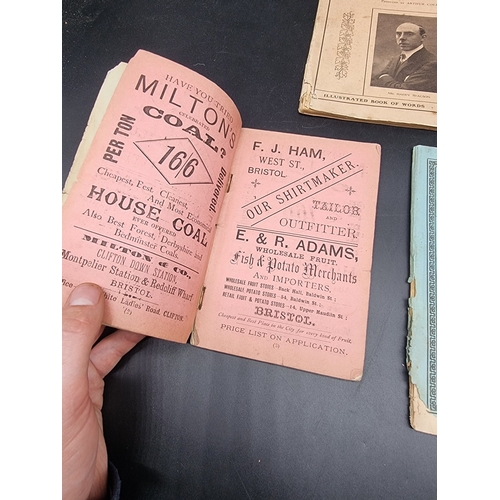 HAVE YOU TRIED
MILTON'S
CELEBRATED
COAL?
PER TON
16/6
delivered.
Cheapest, Best, Cleanest,
And Most Economical
HOUSE COAL
EVER OFFERED
Also Best Forest, Derbyshire and
Bedminster Coals.
MILTON & Co.
CLIFTON DOWN STATION,
Montpelier Station & Redcliff Wharf
BRISTOL.
White Ladies' Road, CLIFTON.
(2)
F. J. HAM,
WEST ST.,
BRISTOL
OUR SHIRTMAKER.
TAILOR
AND
OUTFITTER
E. & R. ADAMS,
WHOLESALE FRUIT,
Fish & Potato Merchants
AND IMPORTERS,
WHOLESALE FRUIT STORES—Back Hall, Baldwin St;
WHOLESALE POTATO STORES—54, Baldwin St;
RETAIL FRUIT & POTATO STORES—14, Upper Maudlin St;
BRISTOL,
Cheapest and Best House in the City for every kind of Fruit.
PRICE LIST ON APPLICATION.
(3)
ILLUSTRATED BOOK OF WORDS